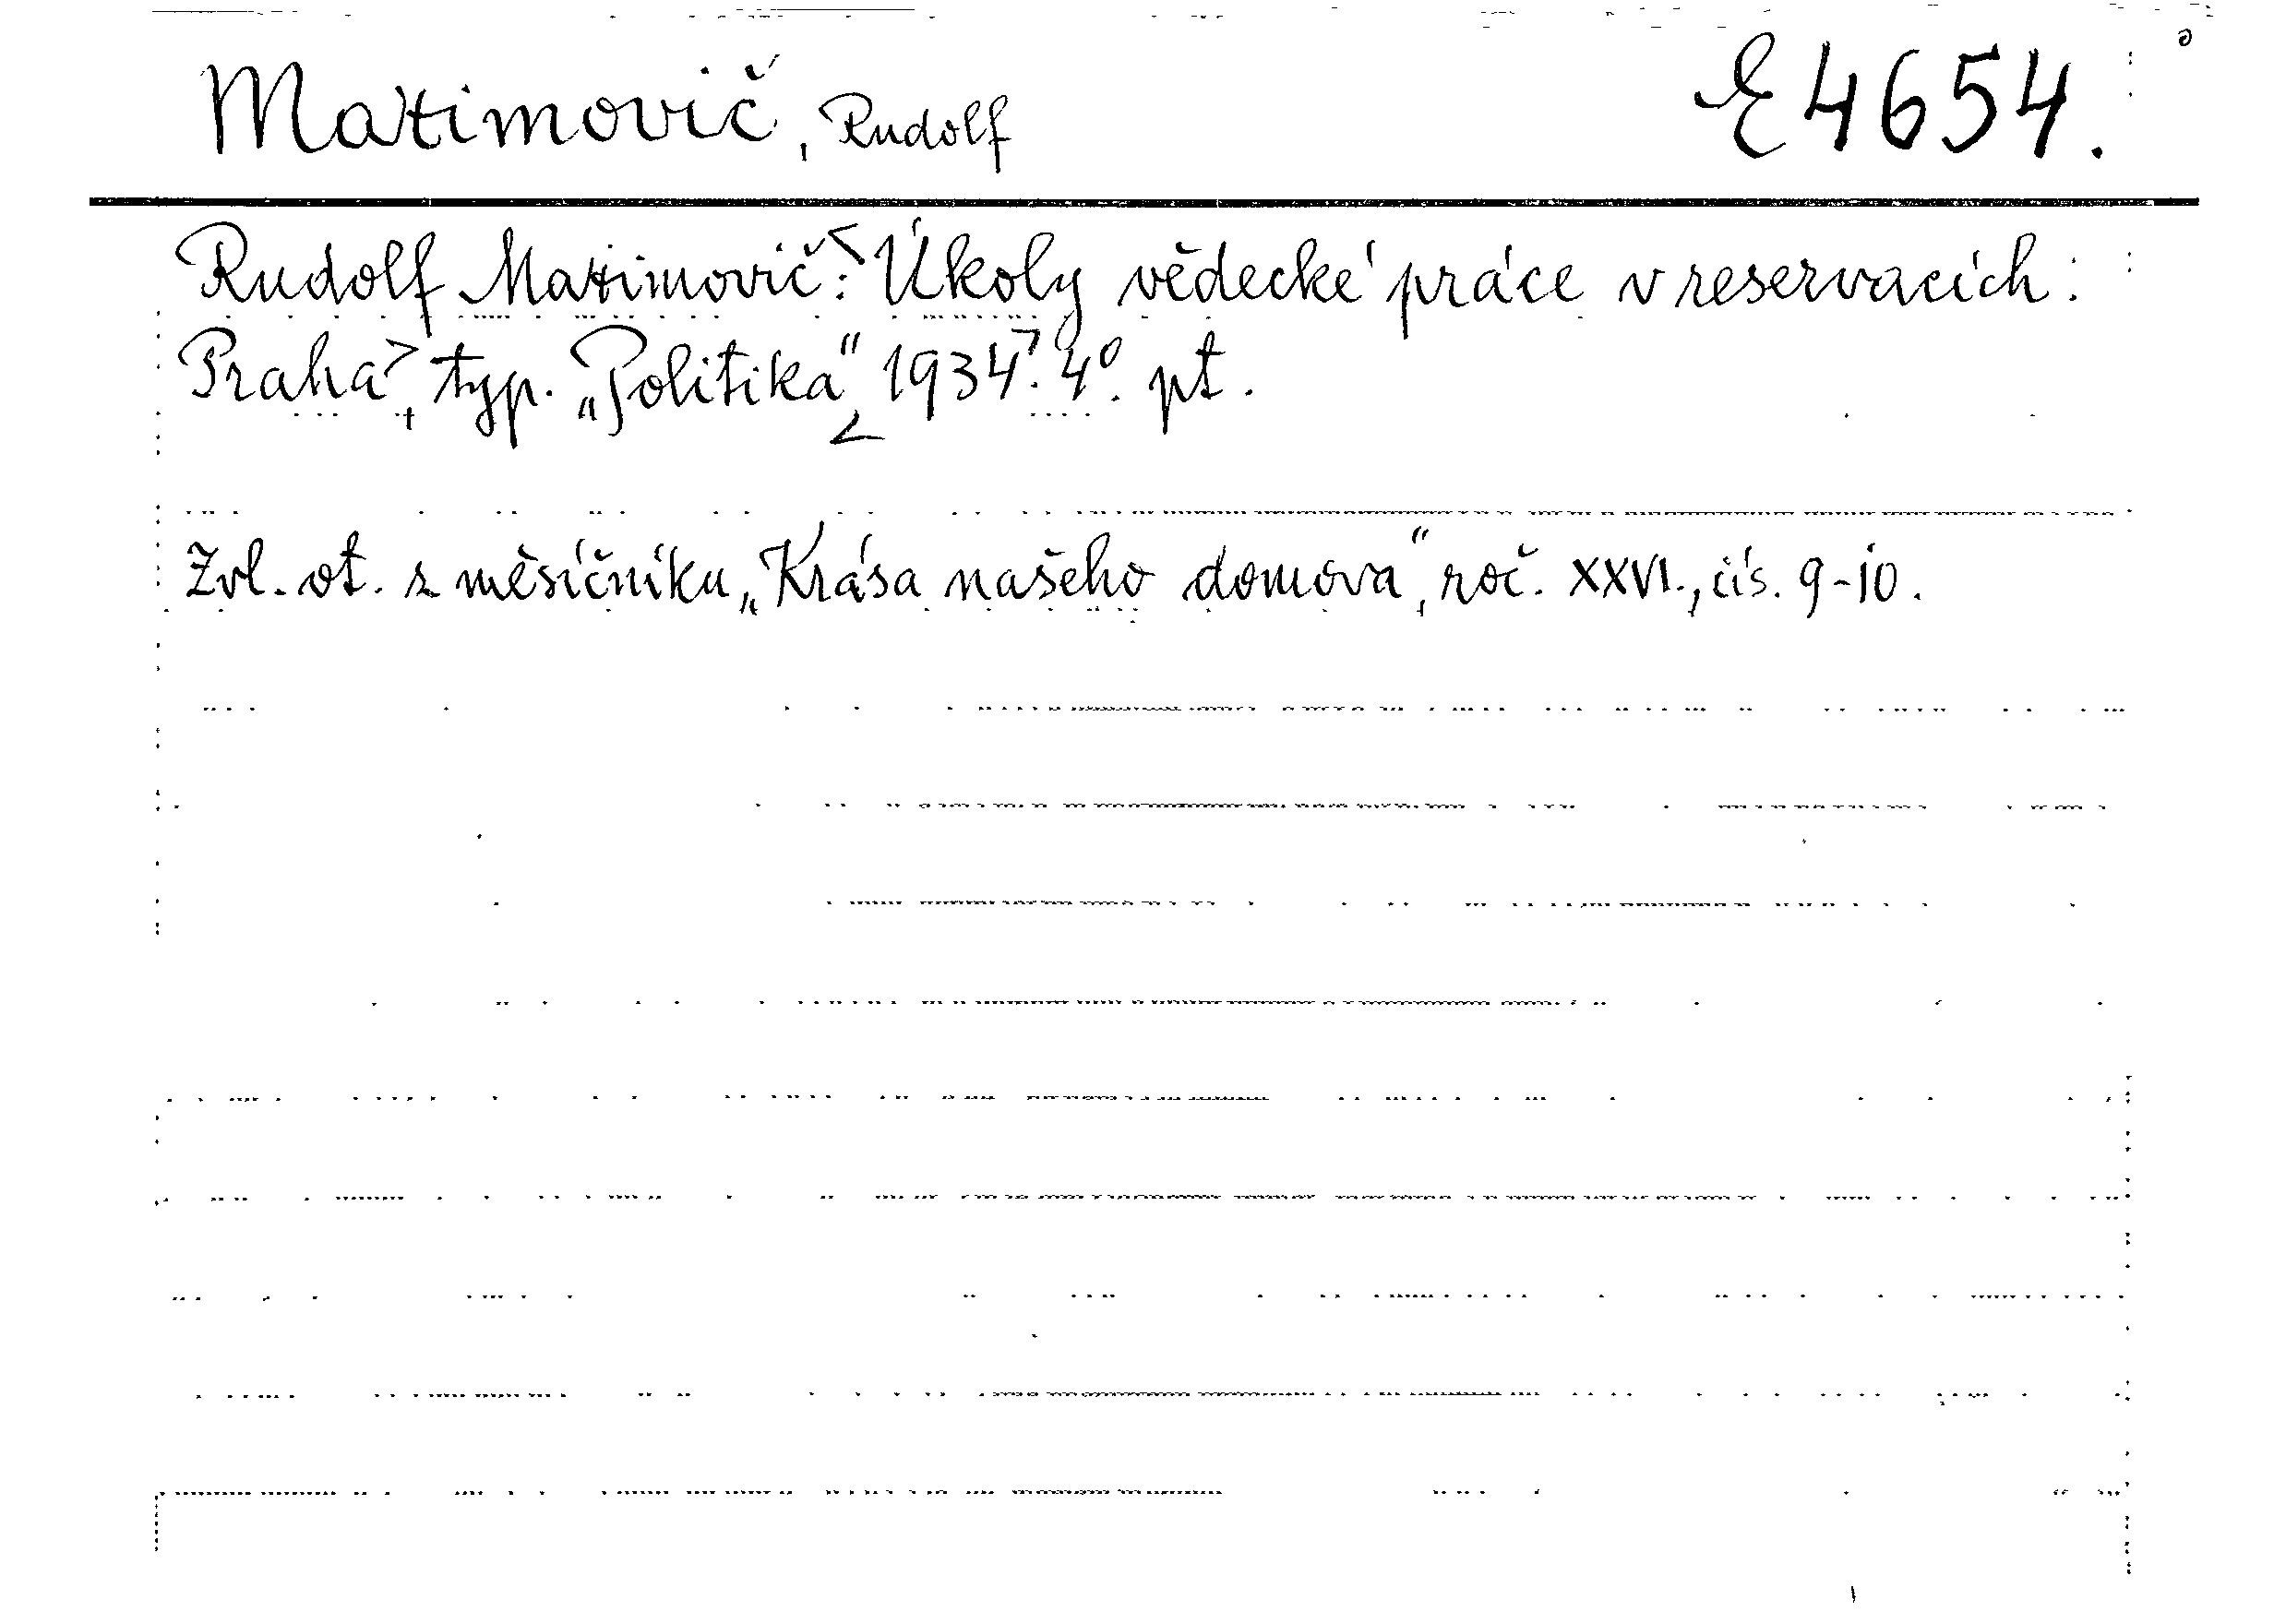 Maximovič, Rudolf E 4654.
Rudolf Maximovič: <Úkoly vědecké práce v reservacích:
Praha>, typ. „Politika“, <1934>. 4°. pt.
Zvl. ot. z měsíčníku „Krása našeho domova“, roč. XXVI., čís. 9-10.